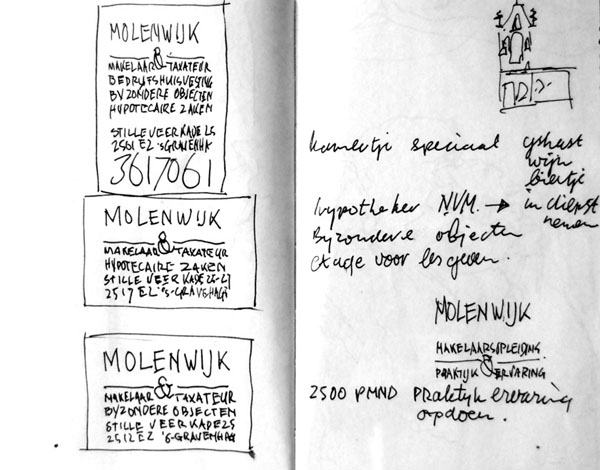 MOLENWIJK
MAKELAAR & TAXATEUR
BEDRIJFSHUISVESTING
BYZONDERE OBJECTEN
HYPOTECAIRE ZAKEN
STILLE VEERKADE 25
2512 EZ 'S GRAVENHA
3617061
MOLENWIJK
MAKELAAR & TAXATEUR
HYPOTECAIRE ZAKEN
STILLE VEERKADE 25-27
2517 EZ 'S-GRAVENHAG
MOLENWIJK
MAKELAAR & TAXATEUR
BYZONDERE OBJECTEN
STILLE VEERKADE 25
2512 EZ 'S-GRAVENHAG
kamertje speciaal yskast
wijn
biertje
hypotheker NVM. → in dienst
nemen
Byzondere objecten
etage voor les geven.
MOLENWIJK
MAKELAARSOPLEIDING
PRAKTIJK & ERVARING
2500 PMND praktijk ervaring
opdoen.